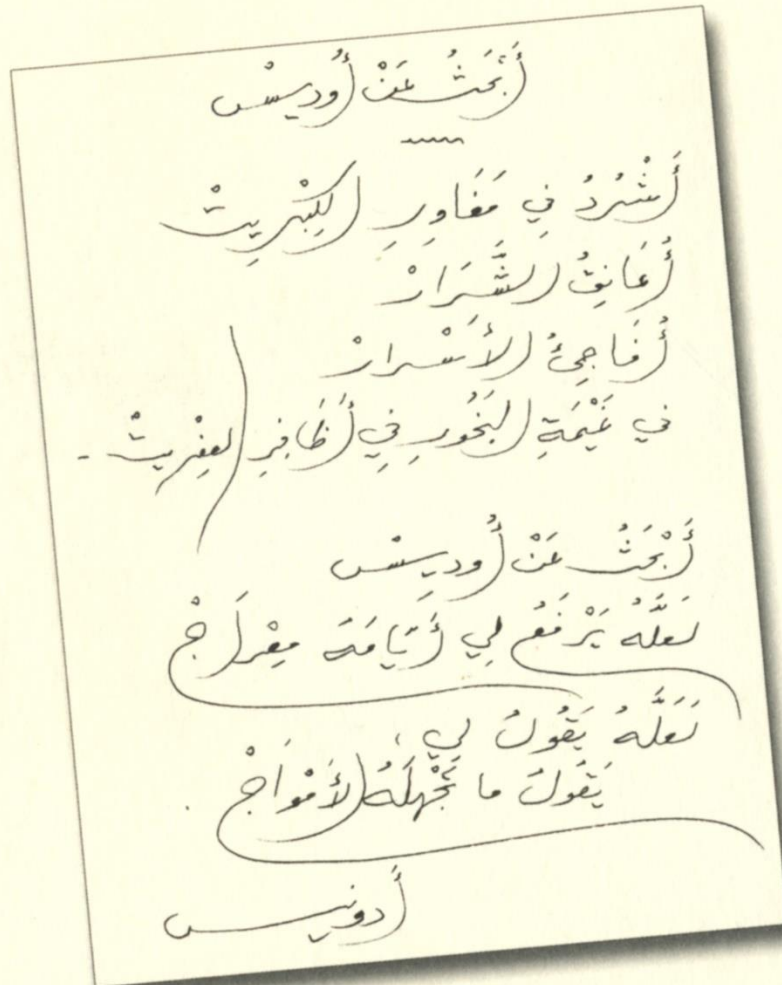 أَبْحَثُ عَنْ أُودِيسْ
أَشْرُدُ فِي مَغَاوِرِ الكِبْرِيتْ
أُعَانِقُ الشَّرَارْ
أُفَاجِئُ الأَسْرارْ
في غَيْمَةِ البَخُورِ فِي أَظَافِرِ العِفْرِيتْ -
أَبْحَثُ عَنْ أُودِيسْ
لعَلَّهُ يَرْفَعُ لِي أَيَّامَهُ مِعْرَاجْ
لَعَلَّهُ يَقُولُ لي،
يَقُولُ ما تَجْهَلُهُ الأَمْوَاجْ.
أدونيس